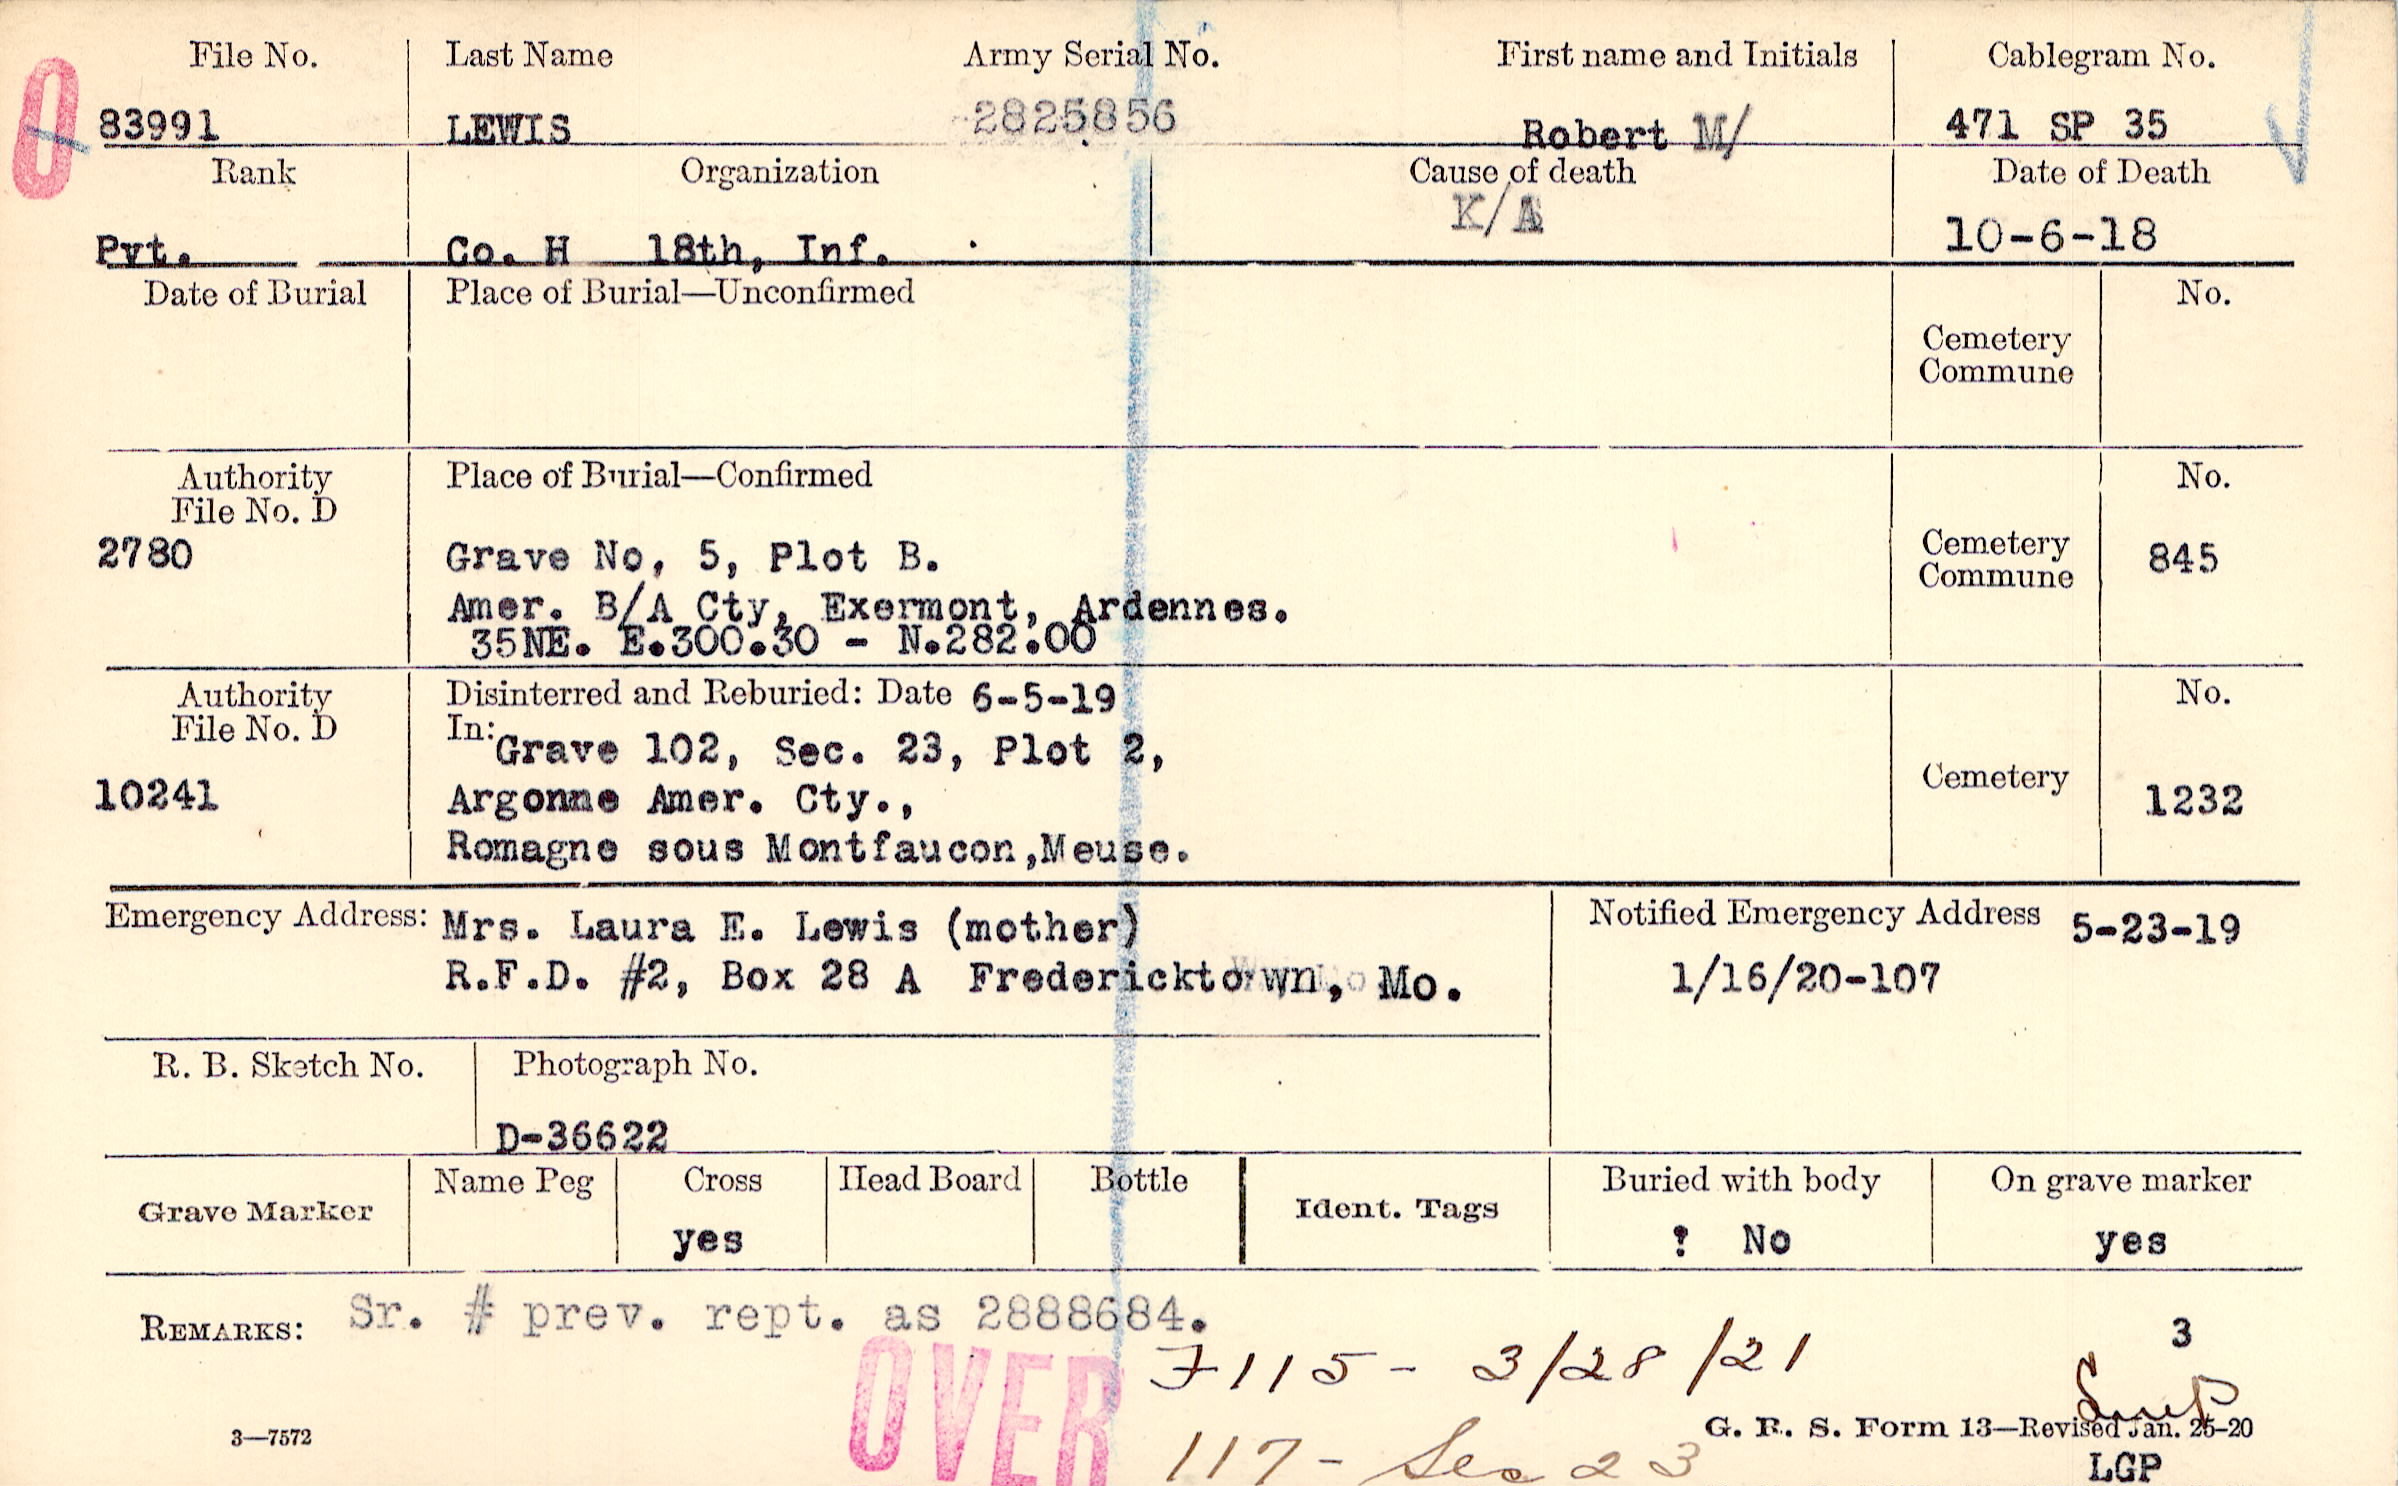 File No. Last Name Army Serial No. First name and Initials Cablegram No.
O
83991 LEWIS 2825856 Robert M/ 471 SP 35
Rank Organization Cause of death Date of Death
K/A
Pvt. Co. H 18th, Inf. 10-6-18
Date of Burial Place of Burial—Unconfirmed No.
Cemetery
Commune
Authority Place of Burial—Confirmed No.
File No. D
2780 Grave No, 5, Plot B. Cemetery 845
Commune
Amer. B/A Cty, Exermont, Ardennes.
35NE. E.300.30 - N.282.00
Authority Disinterred and Reburied: Date 6-5-19 No.
File No. D In: Grave 102, Sec. 23, Plot 2,
10241 Argonne Amer. Cty., Cemetery 1232
Romagne sous Montfaucon,Meuse.
Emergency Address: Mrs. Laura E. Lewis (mother) Notified Emergency Address 5-23-19
R.F.D. #2, Box 28 A Fredericktowwn, Mo. 1/16/20-107
R. B. Sketch No. Photograph No.
D-36622
Grave Marker Name Peg Cross Head Board Bottle Ident. Tags Buried with body On grave marker
yes ? No yes
REMARKS: Sr. # prev. rept. as 2888684. 3
OVER 7115- 3/28/21
3—7572 G. R. S. Form 13—Revised Jan. 25-20
117- Sec 23 LGP